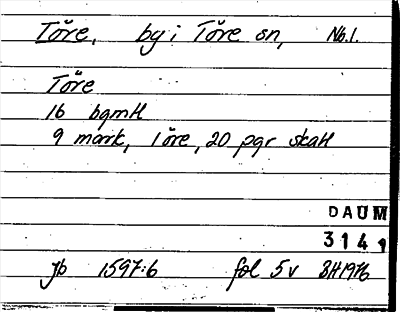 Töre, by i Töre sn, Nb.l.
Töre
16 bgmtl
9 mark, 1 öre, 20 pgr skatt
DAUM
3141
jb 1597:6 fol 5v BH1976